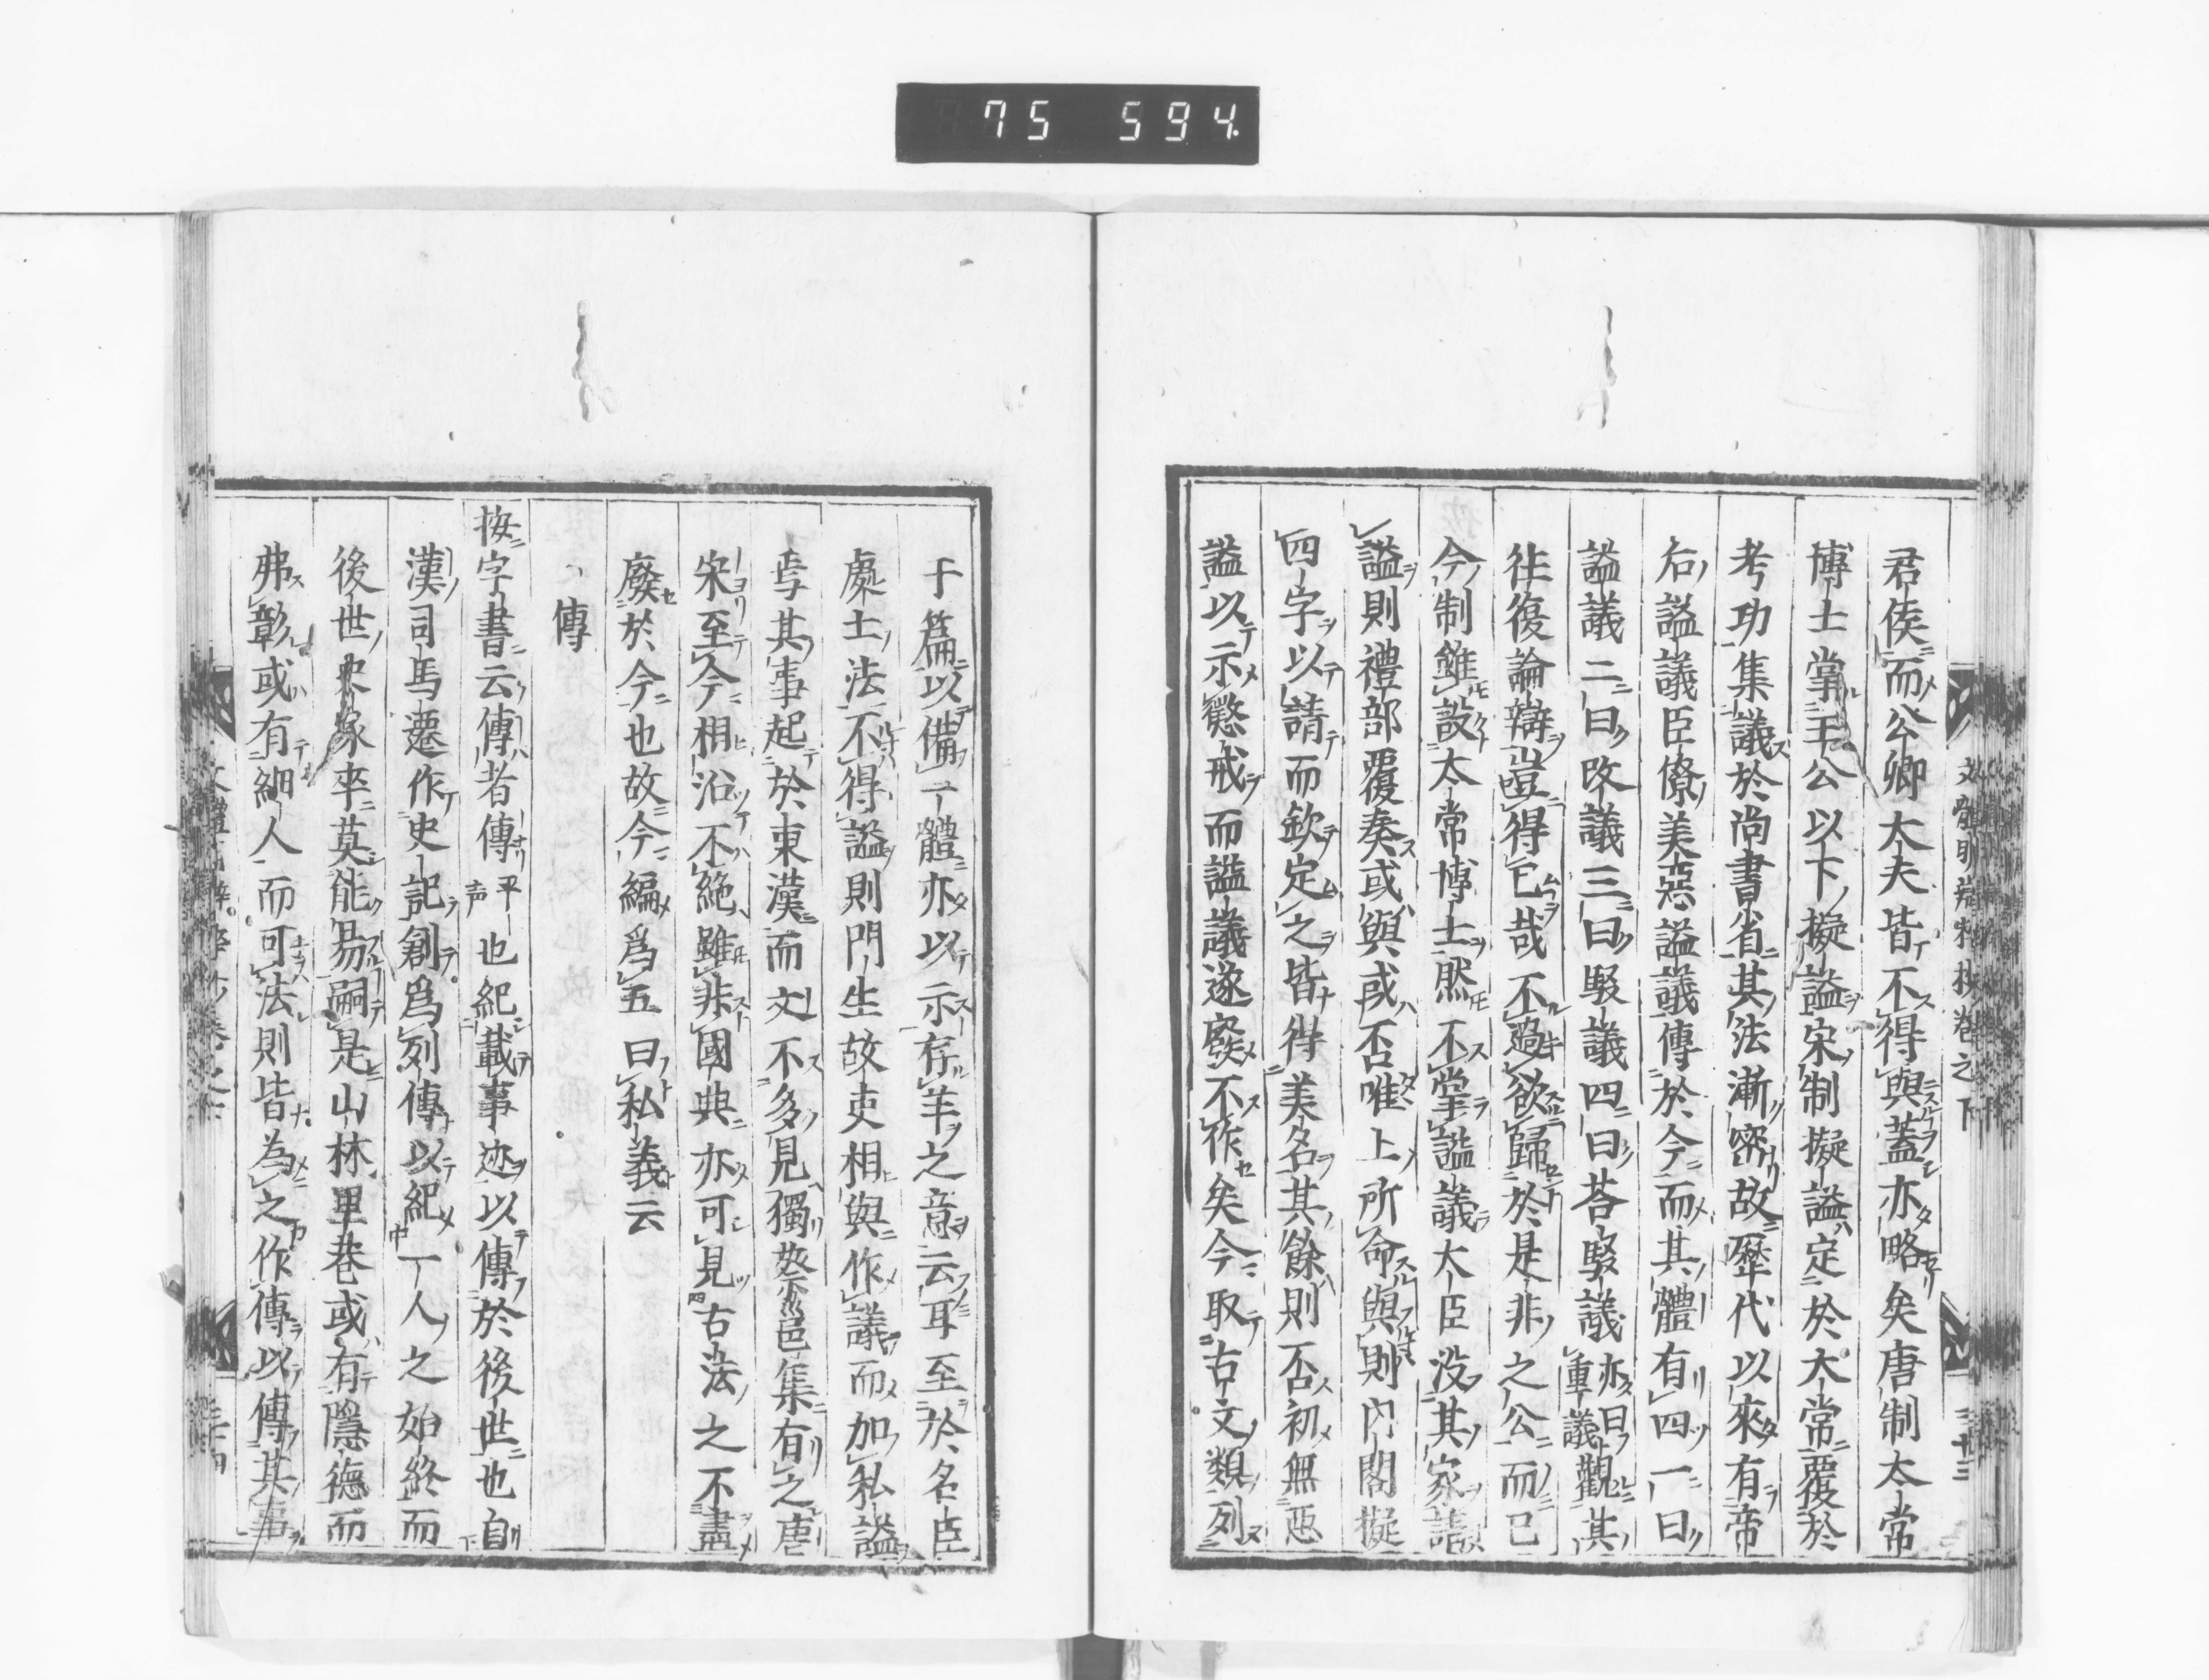 75 594.
君侯而公卿大夫皆不得與蓋亦略矣唐制太常
博士掌王公以下擬諡宋制擬諡定於太常覆於
考功集議於尚書省其法漸密故歷代以來有帝
后諡議臣僚美惡諡議傳於今而其體有四一曰
諡議二曰改議三曰駁議四曰荅駁議亦曰重議觀其
往復論辯豈得已哉不過欲歸於是非之公而已
今制雖設太常博士然不掌諡議大臣没其家請
諡則禮部覆奏或與或否唯上所命與則内閣擬
四字以請而欽定之皆得美名其餘則否初無惡
諡以示懲戒而諡議遂廢不作矣今取古文類列
文體明辯粹抄卷之下
于篇以備一體亦以示存羊之意云耳至於名臣
處士法不得諡則門生故吏相與作議而加私諡
焉其事起於東漢而文不多見獨蔡邕集有之唐
宋至今相沿不絶雖非國典亦可見古法之不盡
廢於今也故今編爲五曰私義云
傳
按字書云傳者傳平声也紀載事迹以傳於後世也自
漢司馬遷作史記創爲列傳以紀一人之始終而
後世史家卒莫能易嗣是山林里巷或有隱德而
弗彰或有細人而可法則皆為之作傳以傳其事